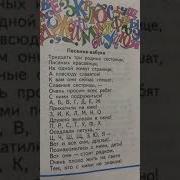 Песенка-азбука
Тридцать три родных сестрицы,
Писаных красавицы,
На одной живут странице,
А повсюду славятся!
К вам они сейчас спешат,
Славные сестрицы, —
Очень просят всех ребят
С ними подружиться!
А, Б, В, Г, Д, Е, Ж
Прикатили на еже!
З, И, К, Л, М, Н, О
Дружно вылезли в окно!
П, Р, С, Т, У, Ф, Х
Оседлали петуха, —
Ц, Ч, Ш, Щ, Э, Ю, Я —
Вот и все они, друзья!
Познакомьтесь с ними, дети!
Вот они — стоят рядком.
Очень плохо жить на свете
Тем, кто с ними не знаком!